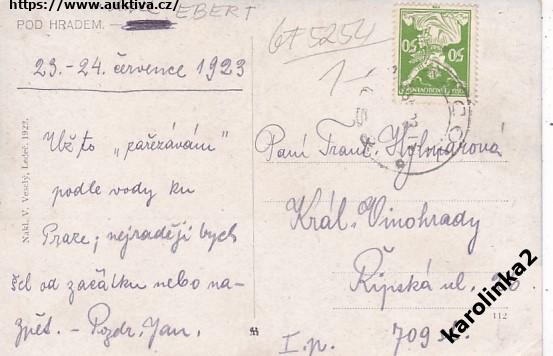 https://www.auktiva.cz/
EBERT
POD HRADEM. —
6F5254
1-
23.-24. července 1923
50 50
Už to „zařezávám"
podle vody ku
Praze; nejraději bych
šel od začátku nebo na-
zpět. - Pozdr. Jan.
Nakl. V. Veselý, Ledeč. 1922.
Paní Frant. Hylmarová
Král. Vinohrady
Řípská ul.
I. p.
112
karolinka2